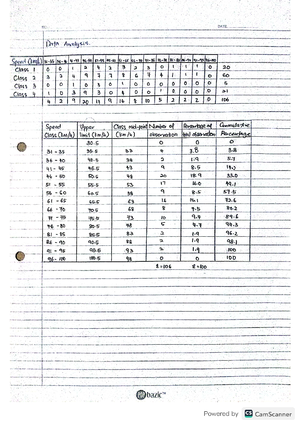 DATE
Data Analysis.
Speed (km/h)
Class 1 0 0 1 2 4 2 3 2 3 0 1 1 1 0 20
Class 2 3 2 4 9 7 7 8 6 7 4 1 1 1 0 60
Class 3 0 0 1 0 4 0 1 0 0 0 0 0 0 0
Class 4 1 0 3 9 3 0 4 0 0 1 0 0 0 0 21
4 2 9 20 17 9 16 8 10 5 2 2 2 0 106
Speed Upper Class mid-point Number of Percentage of Cumulative
Class (km/h) limit (km/h) (km/h) observation total observation Percentage
30.5 0 0 0
31 - 35 35.5 33 4 3.8 3.8
36 - 40 40.5 38 2 1.9 5.7
41 - 45 45.5 43 9 8.5
46 - 50 50.5 48 20 18.9 33.0
51 - 55 55.5 53 17 16.0 49.1
56 - 60 60.5 58 9 8.5 57.5
61 - 65 65.5 63 16 15.1 72.6
66 - 70 70.5 68 8 7.5 80.2
75.5 73 10 9.4 89.6
76 - 80 80.5 78 5 4.7 94.3
81 - 85 85.5 83 2 1.9 96.2
86 - 90 90.5 88 2 1.9 98.1
91 - 95 95.5 93 2 1.9 100
96 - 100 100.5 98 0 0 100
Σ=106 Σ=100
bazic
Powered by CS CamScanner